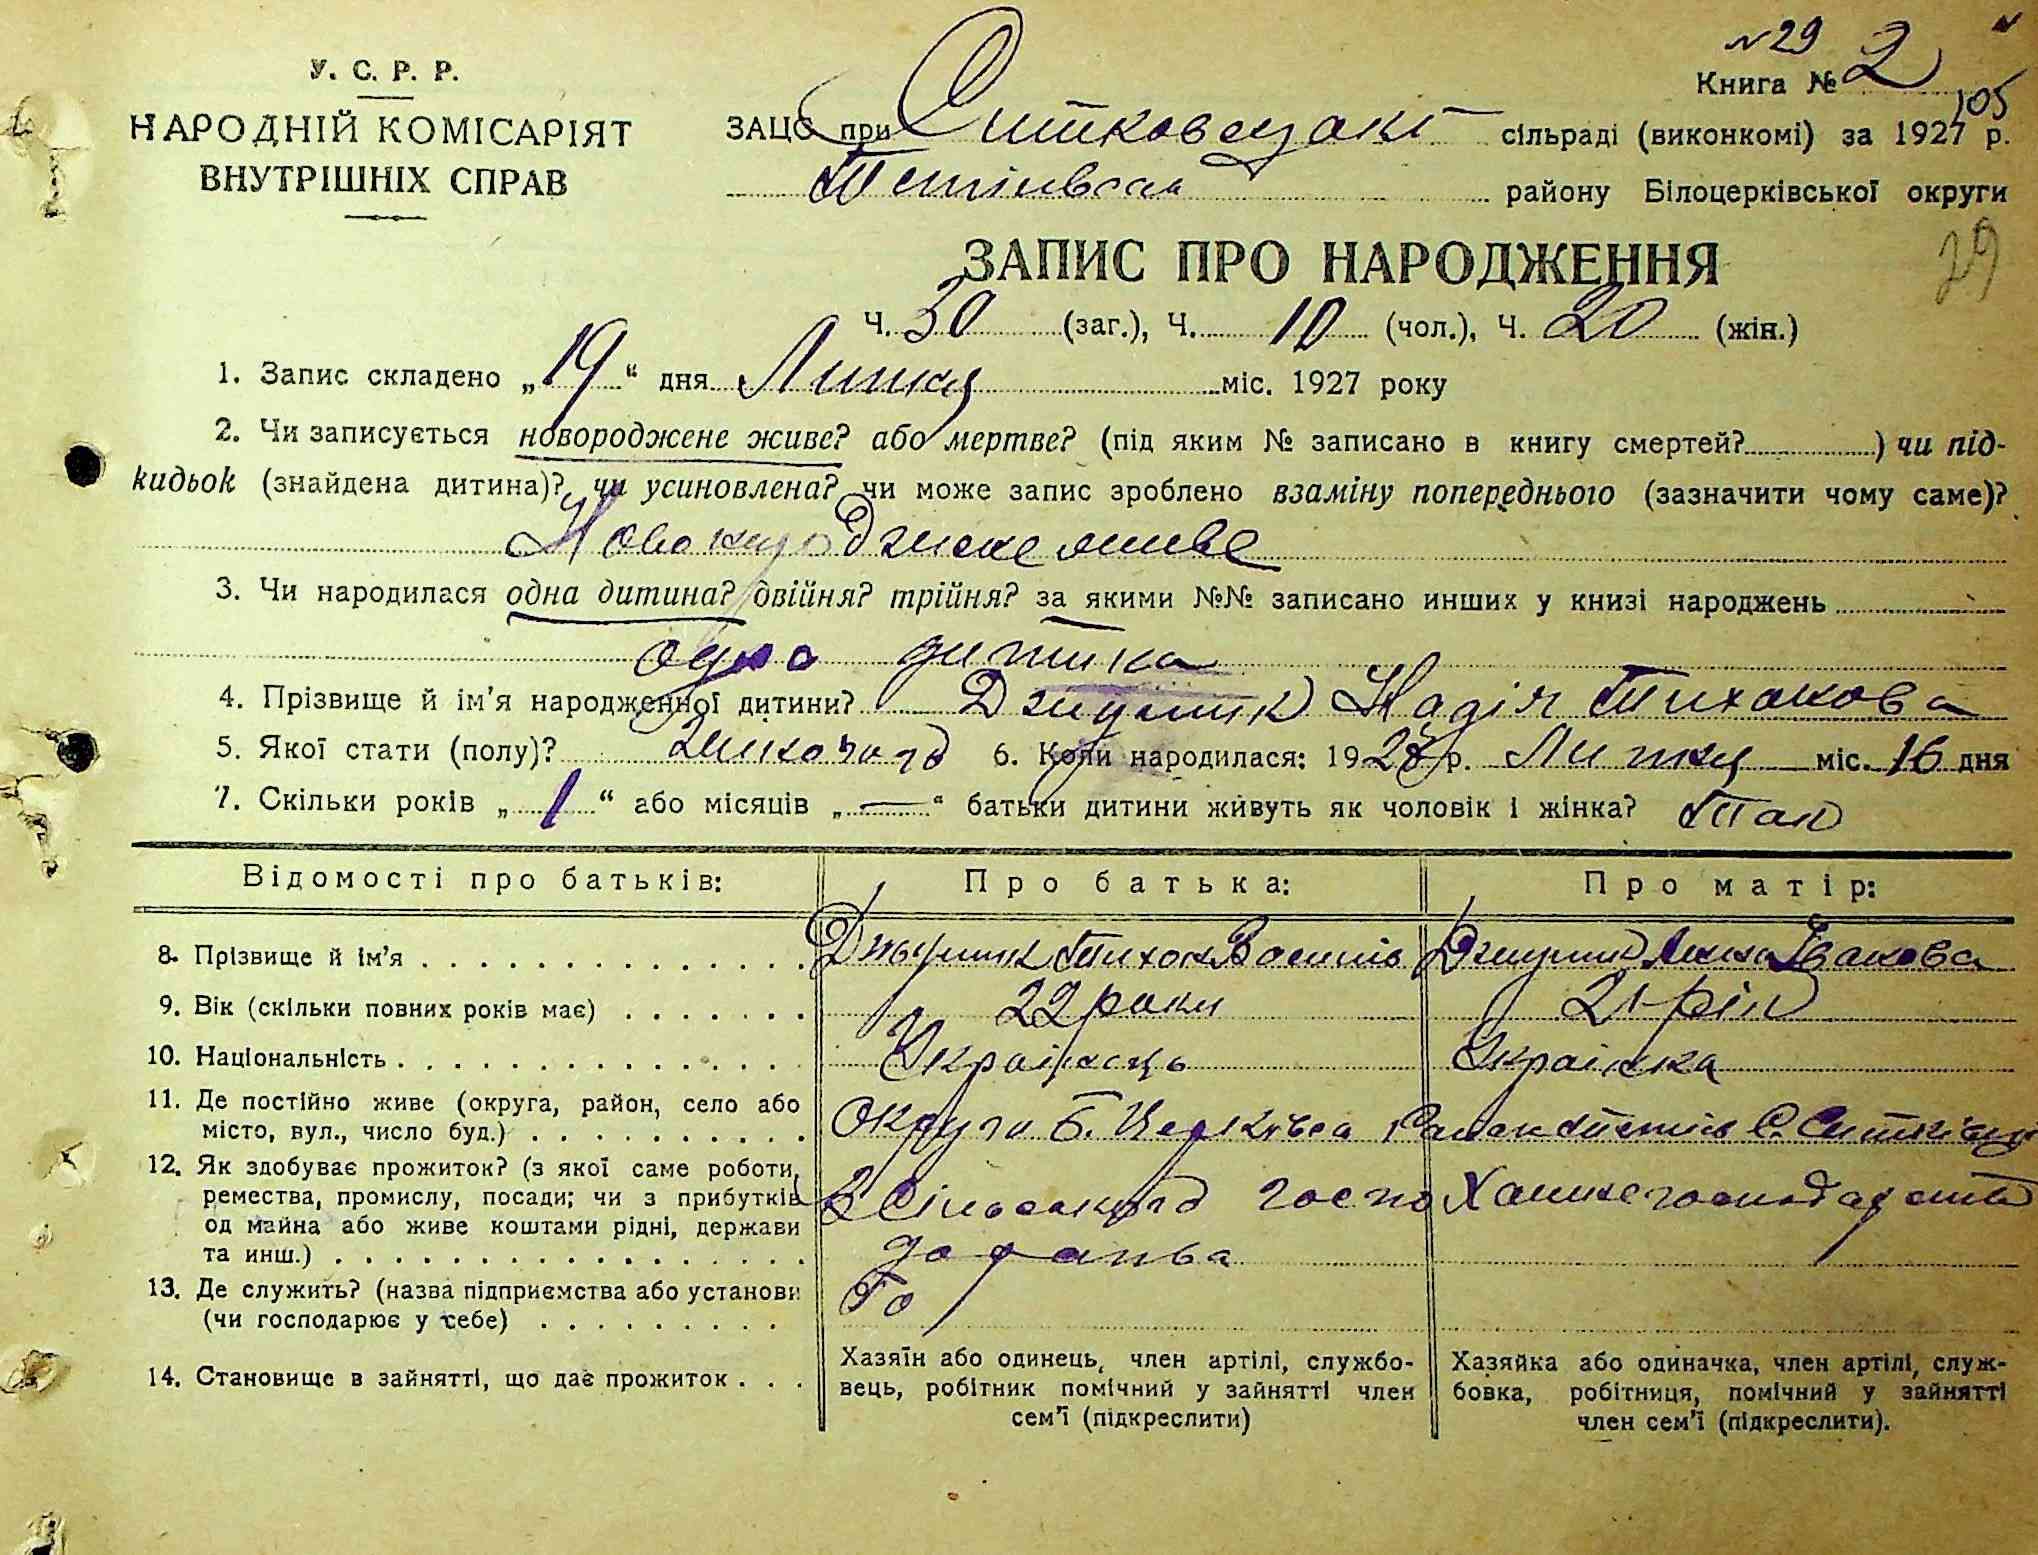 №29
У. С. Р. Р.
Книга № 2
105
НАРОДНІЙ КОМІСАРІЯТ
ВНУТРІШНІХ СПРАВ
ЗАЦС при сільраді (виконкомі) за 1927 р.
району Білоцерківської округи
ЗАПИС ПРО НАРОДЖЕННЯ
29
Ч. 30 (заг.), Ч. 10 (чол.), Ч. 20 (жін.)
1. Запис складено „19“ дня Липня міс. 1927 року
2. Чи записується новороджене живе? або мертве? (під яким № записано в книгу смертей? ) чи під-
кидьок (знайдена дитина)? чи усиновлена? чи може запис зроблено взаміну попереднього (зазначити чому саме)?
живе
3. Чи народилася одна дитина? двійня? трійня? за якими №№ записано инших у книзі народжень
одна дитина
4. Прізвище й ім’я народженної дитини? Надія Тихонова
5. Якої стати (полу)? 6. Коли народилася: 19 р. Липня міс. 16 дня
7. Скільки років „1“ або місяців „—“ батьки дитини живуть як чоловік і жінка? Так
Відомості про батьків: Про батька: Про матір:
8. Прізвище й ім’я Тихон Василів Іванова
9. Вік (скільки повних років має) 22 роки 21 рік
10. Національність Українець Українка
11. Де постійно живе (округа, район, село або
місто, вул., число буд.) Округа Б. Церківсь
12. Як здобуває прожиток? (з якої саме роботи,
ремества, промислу, посади; чи з прибутків З госпо
од майна або живе коштами рідні, держави
та инш.)
13. Де служить? (назва підприємства або установи
(чи господарює у себе)
14. Становище в зайнятті, що дає прожиток
Хазяїн або одинець, член артілі, службо-
вець, робітник помічний у зайнятті член
сем’ї (підкреслити)
Хазяйка або одиначка, член артілі, служ-
бовка, робітниця, помічний у зайнятті
член сем’ї (підкреслити).